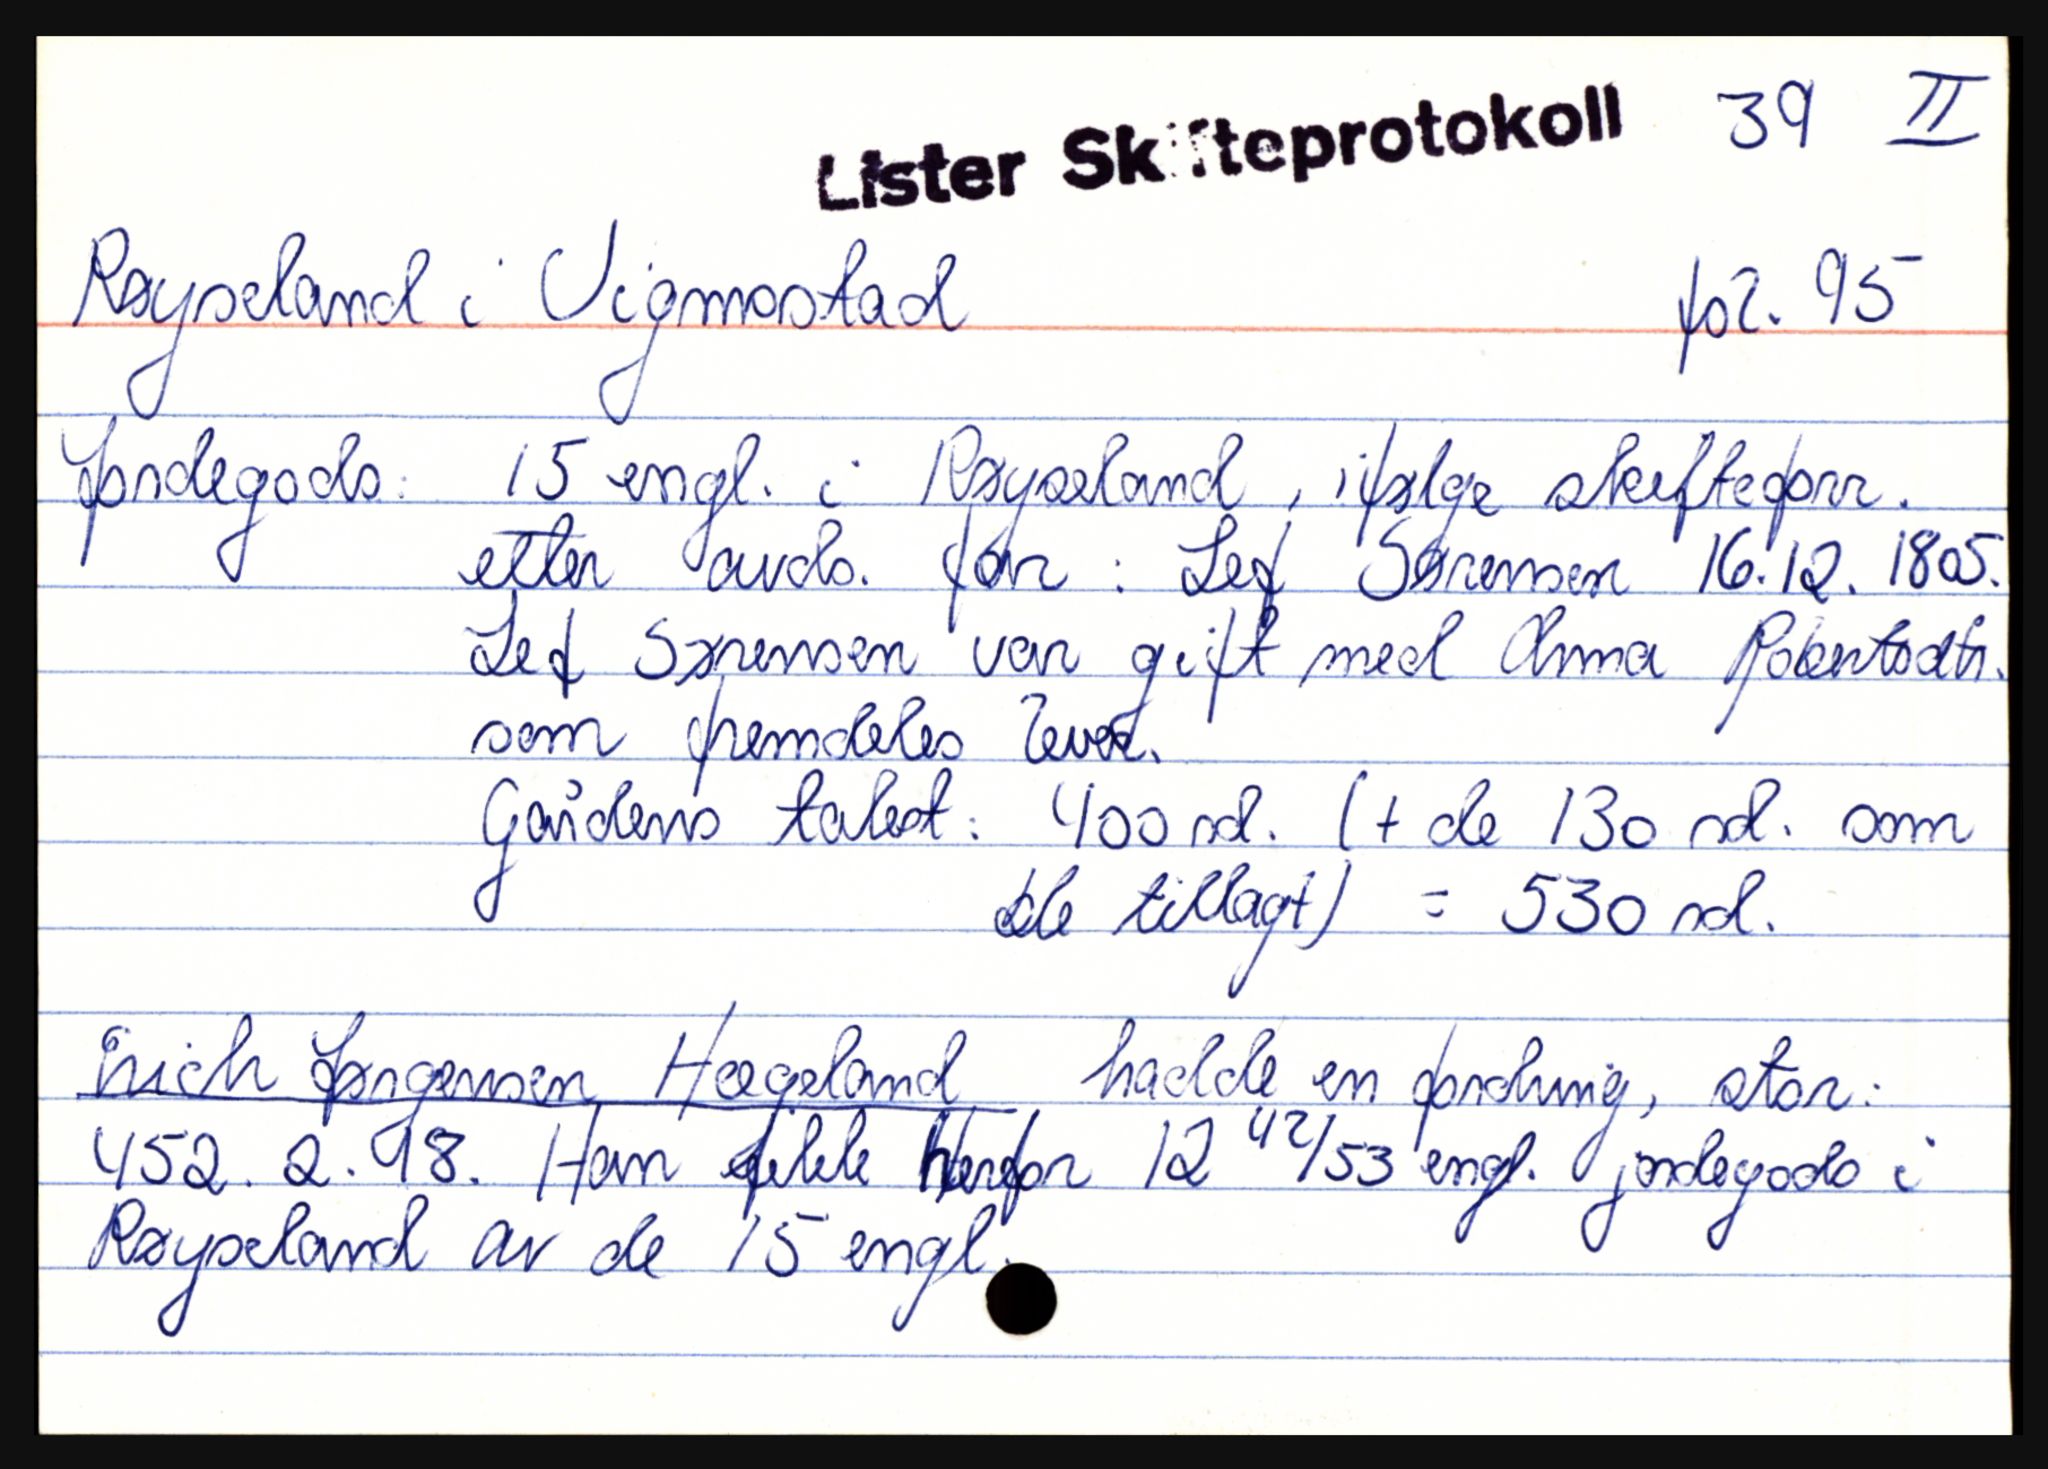 Lister Skifteprotokoll 39 II
Røyseland i Vigmostad fol. 95
Jordegods: 15 engl. i Røyseland, ifølge skifteforr.
etter avds. far: Lef Sørensen 16.12.1805.
Lef Sørensen var gift med Anna Robertsdtr.
som fremdeles lever.
Gårdens takst: 400 rd. (+ de 130 rd. som
ble tillagt) = 530 rd.
Erich Jørgensen Hægeland hadde en fordring, stor:
452. 2. 98. Han fikk herfor 12 42/53 engl. jordegods i
Røyseland av de 15 engl.